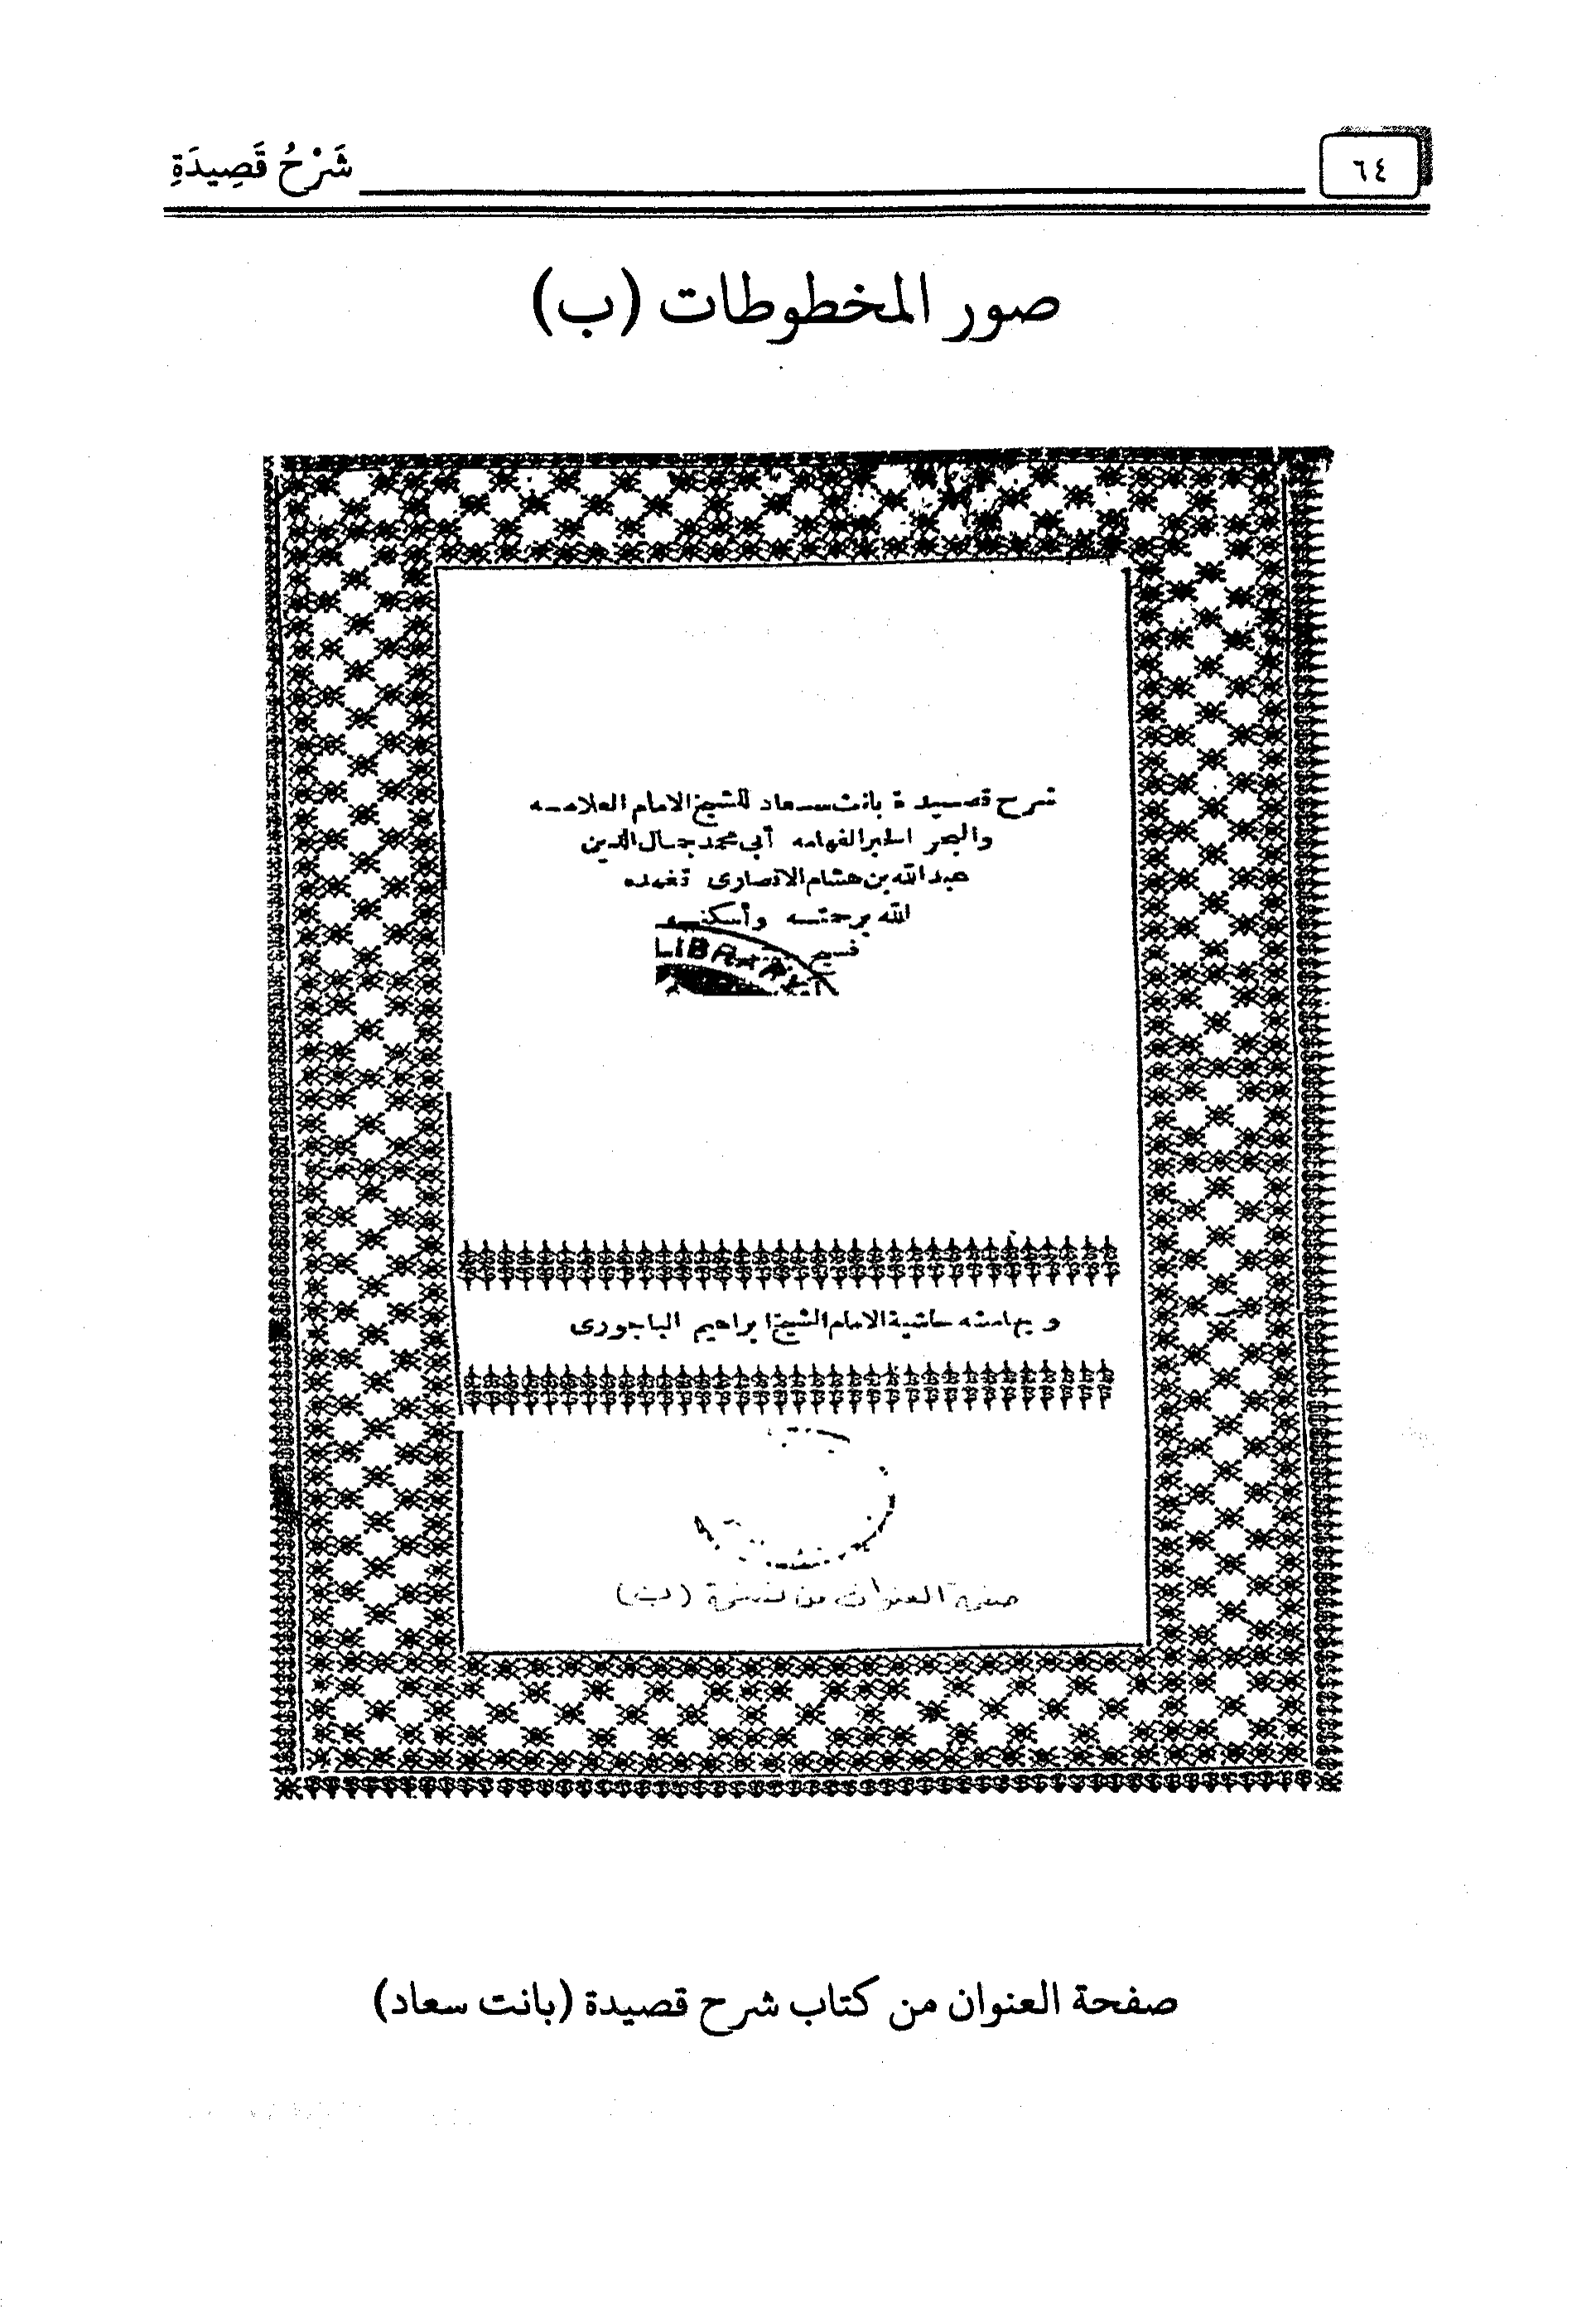 ٦٤
شَرْحُ قَصِيدَةِ
صور المخطوطات (ب)
شرح قصيدة بانت سعاد للشيخ الامام العلامه
والبحر الحبر الفهامه أبي محمد جمال الدين
عبد الله بن هشام الانصارى تغمده
الله برحمته وأسكنه
فسيح
LIBRARY
وبهامشه حاشية الامام الشيخ ابراهيم الباجورى
صفحة العنوان من نسخة (ب)
صفحة العنوان من كتاب شرح قصيدة (بانت سعاد)